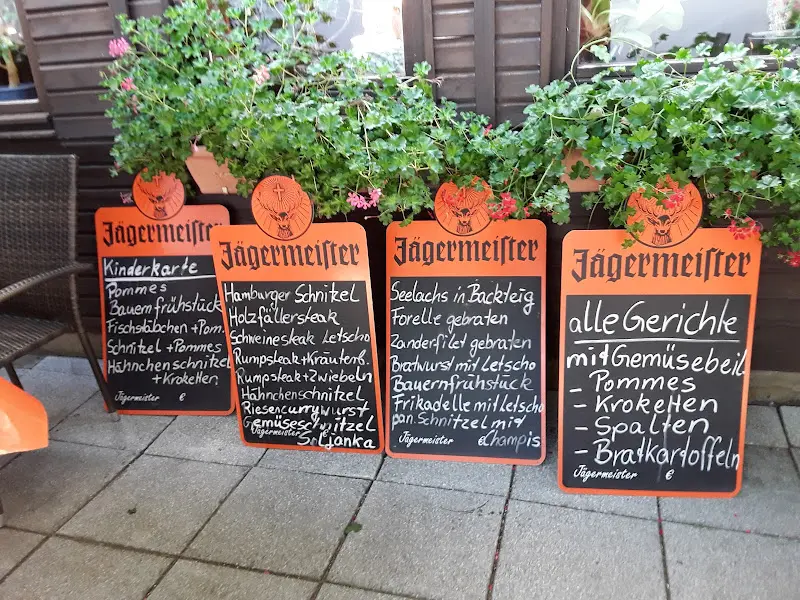 Jägermeister
Kinderkarte
Pommes
Bauernfrühstück
Fischstäbchen + Pom.
Schnitzel + Pommes
Hähnchenschnitzel
+ Kroketten
Jägermeister €
Jägermeister
Hamburger Schnitzel
Holzfällersteak
Schweinesteak Letscho
Rumpsteak + Kräuterb.
Rumpsteak + Zwiebeln
Hähnchenschnitzel
Riesencurrywurst
Gemüseschnitzel
Jägermeister €
Soljanka
Jägermeister
Seelachs in Backteig
Forelle gebraten
Zanderfilet gebraten
Bratwurst mit Letscho
Bauernfrühstück
Frikadelle mit Letscho
pan. Schnitzel mit
Jägermeister €
Champis
Jägermeister
alle Gerichte
mit Gemüsebeil
- Pommes
- Kroketten
- Spalten
- Bratkartoffeln
Jägermeister €